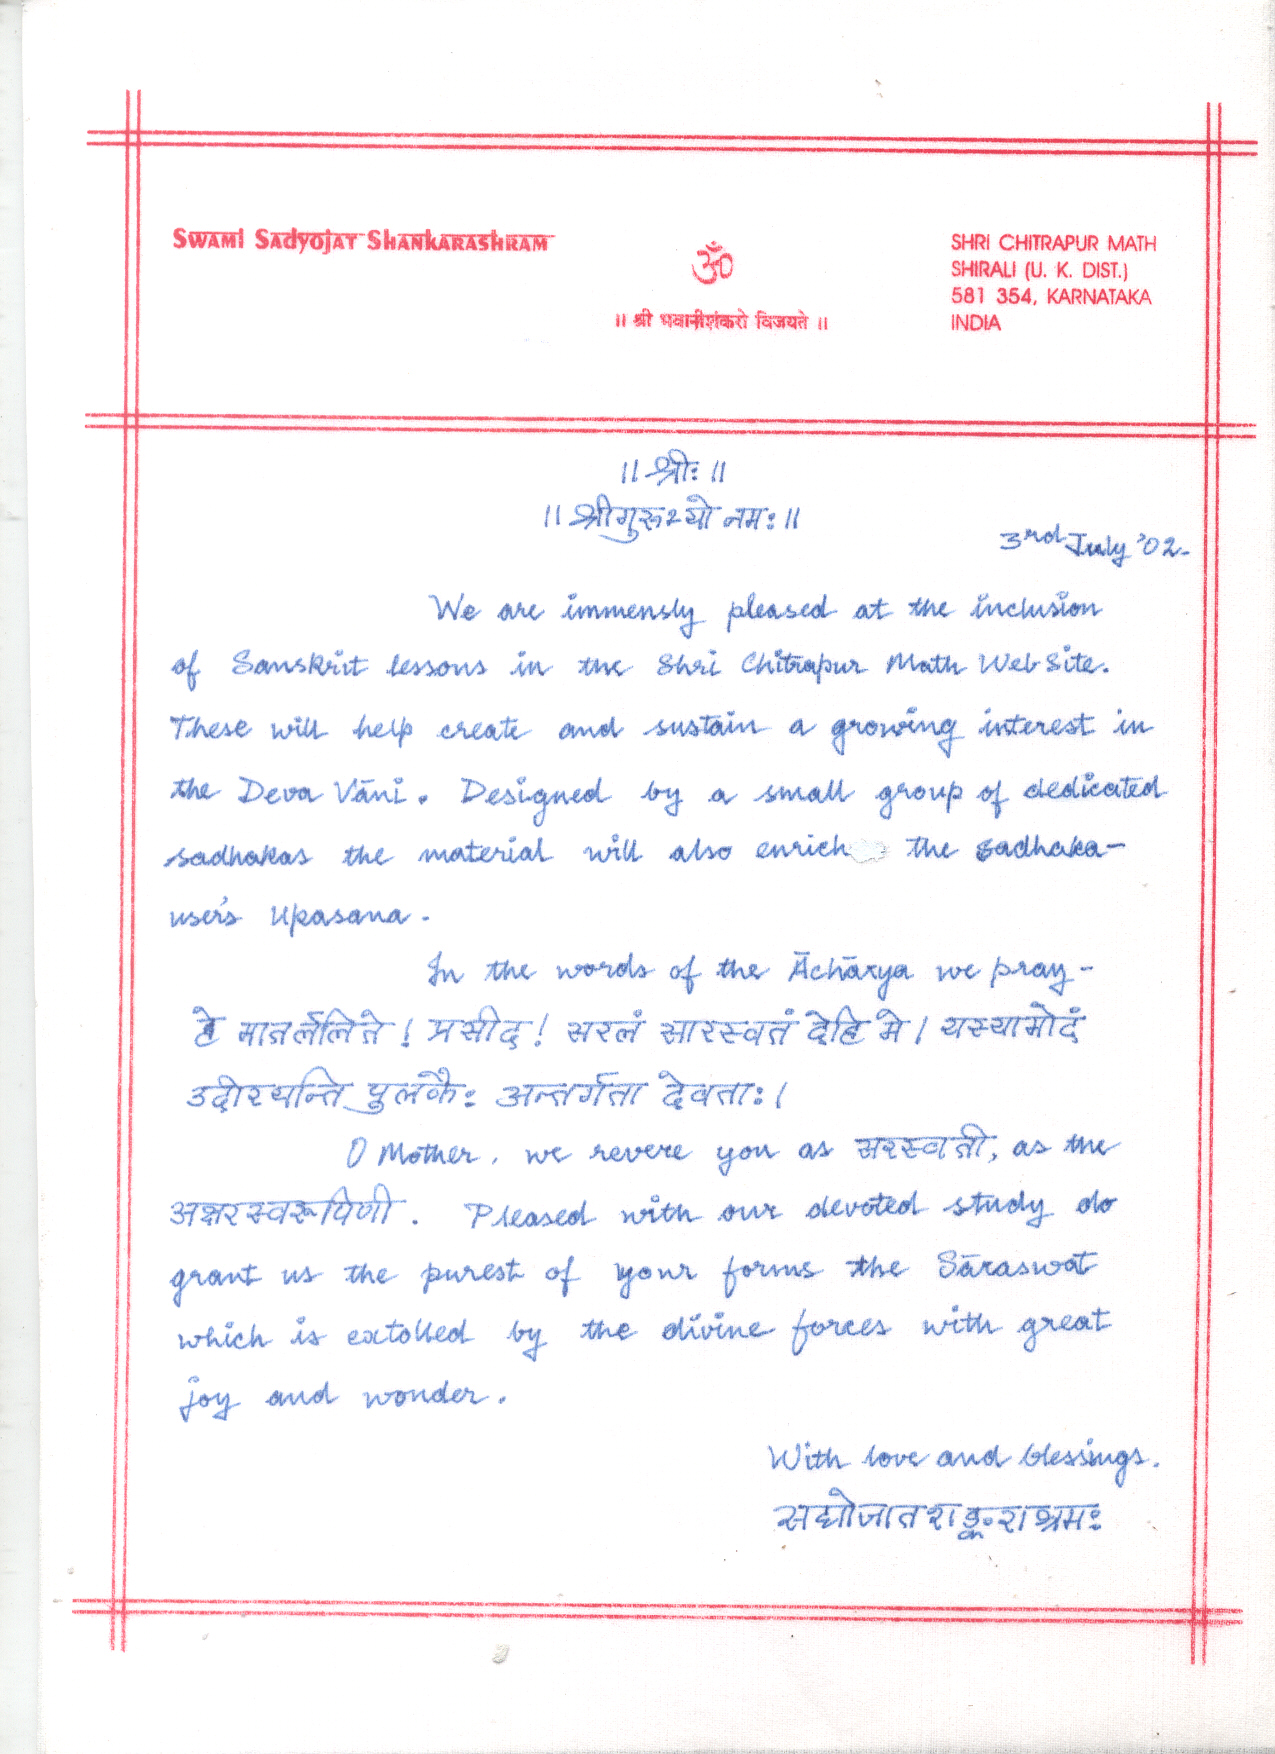 Swami Sadyojat Shankarashram
ॐ
॥ श्री भवानीशंकरो विजयते ॥
SHRI CHITRAPUR MATH
SHIRALI (U. K. DIST.)
581 354, KARNATAKA
INDIA
॥ श्रीः ॥
॥ श्रीगुरुभ्यो नमः ॥
3rd July '02.
We are immensly pleased at the inclusion
of Sanskrit lessons in the Shri Chitrapur Math Web Site.
These will help create and sustain a growing interest in
the Deva Vāni. Designed by a small group of dedicated
sadhakas the material will also enrich the sadhaka-
user's Upasana.
In the words of the Āchārya we pray -
हे मातर्ललिते ! प्रसीद ! सरलं सारस्वतं देहि मे । यस्यामोदं
उदीरयन्ति पुलकैः अन्तर्गता देवताः ।
O Mother, we revere you as सरस्वती, as the
अक्षरस्वरूपिणी. Pleased with our devoted study do
grant us the purest of your forms the Sāraswat
which is extolled by the divine forces with great
joy and wonder.
With love and blessings.
सद्योजात शङ्कराश्रमः